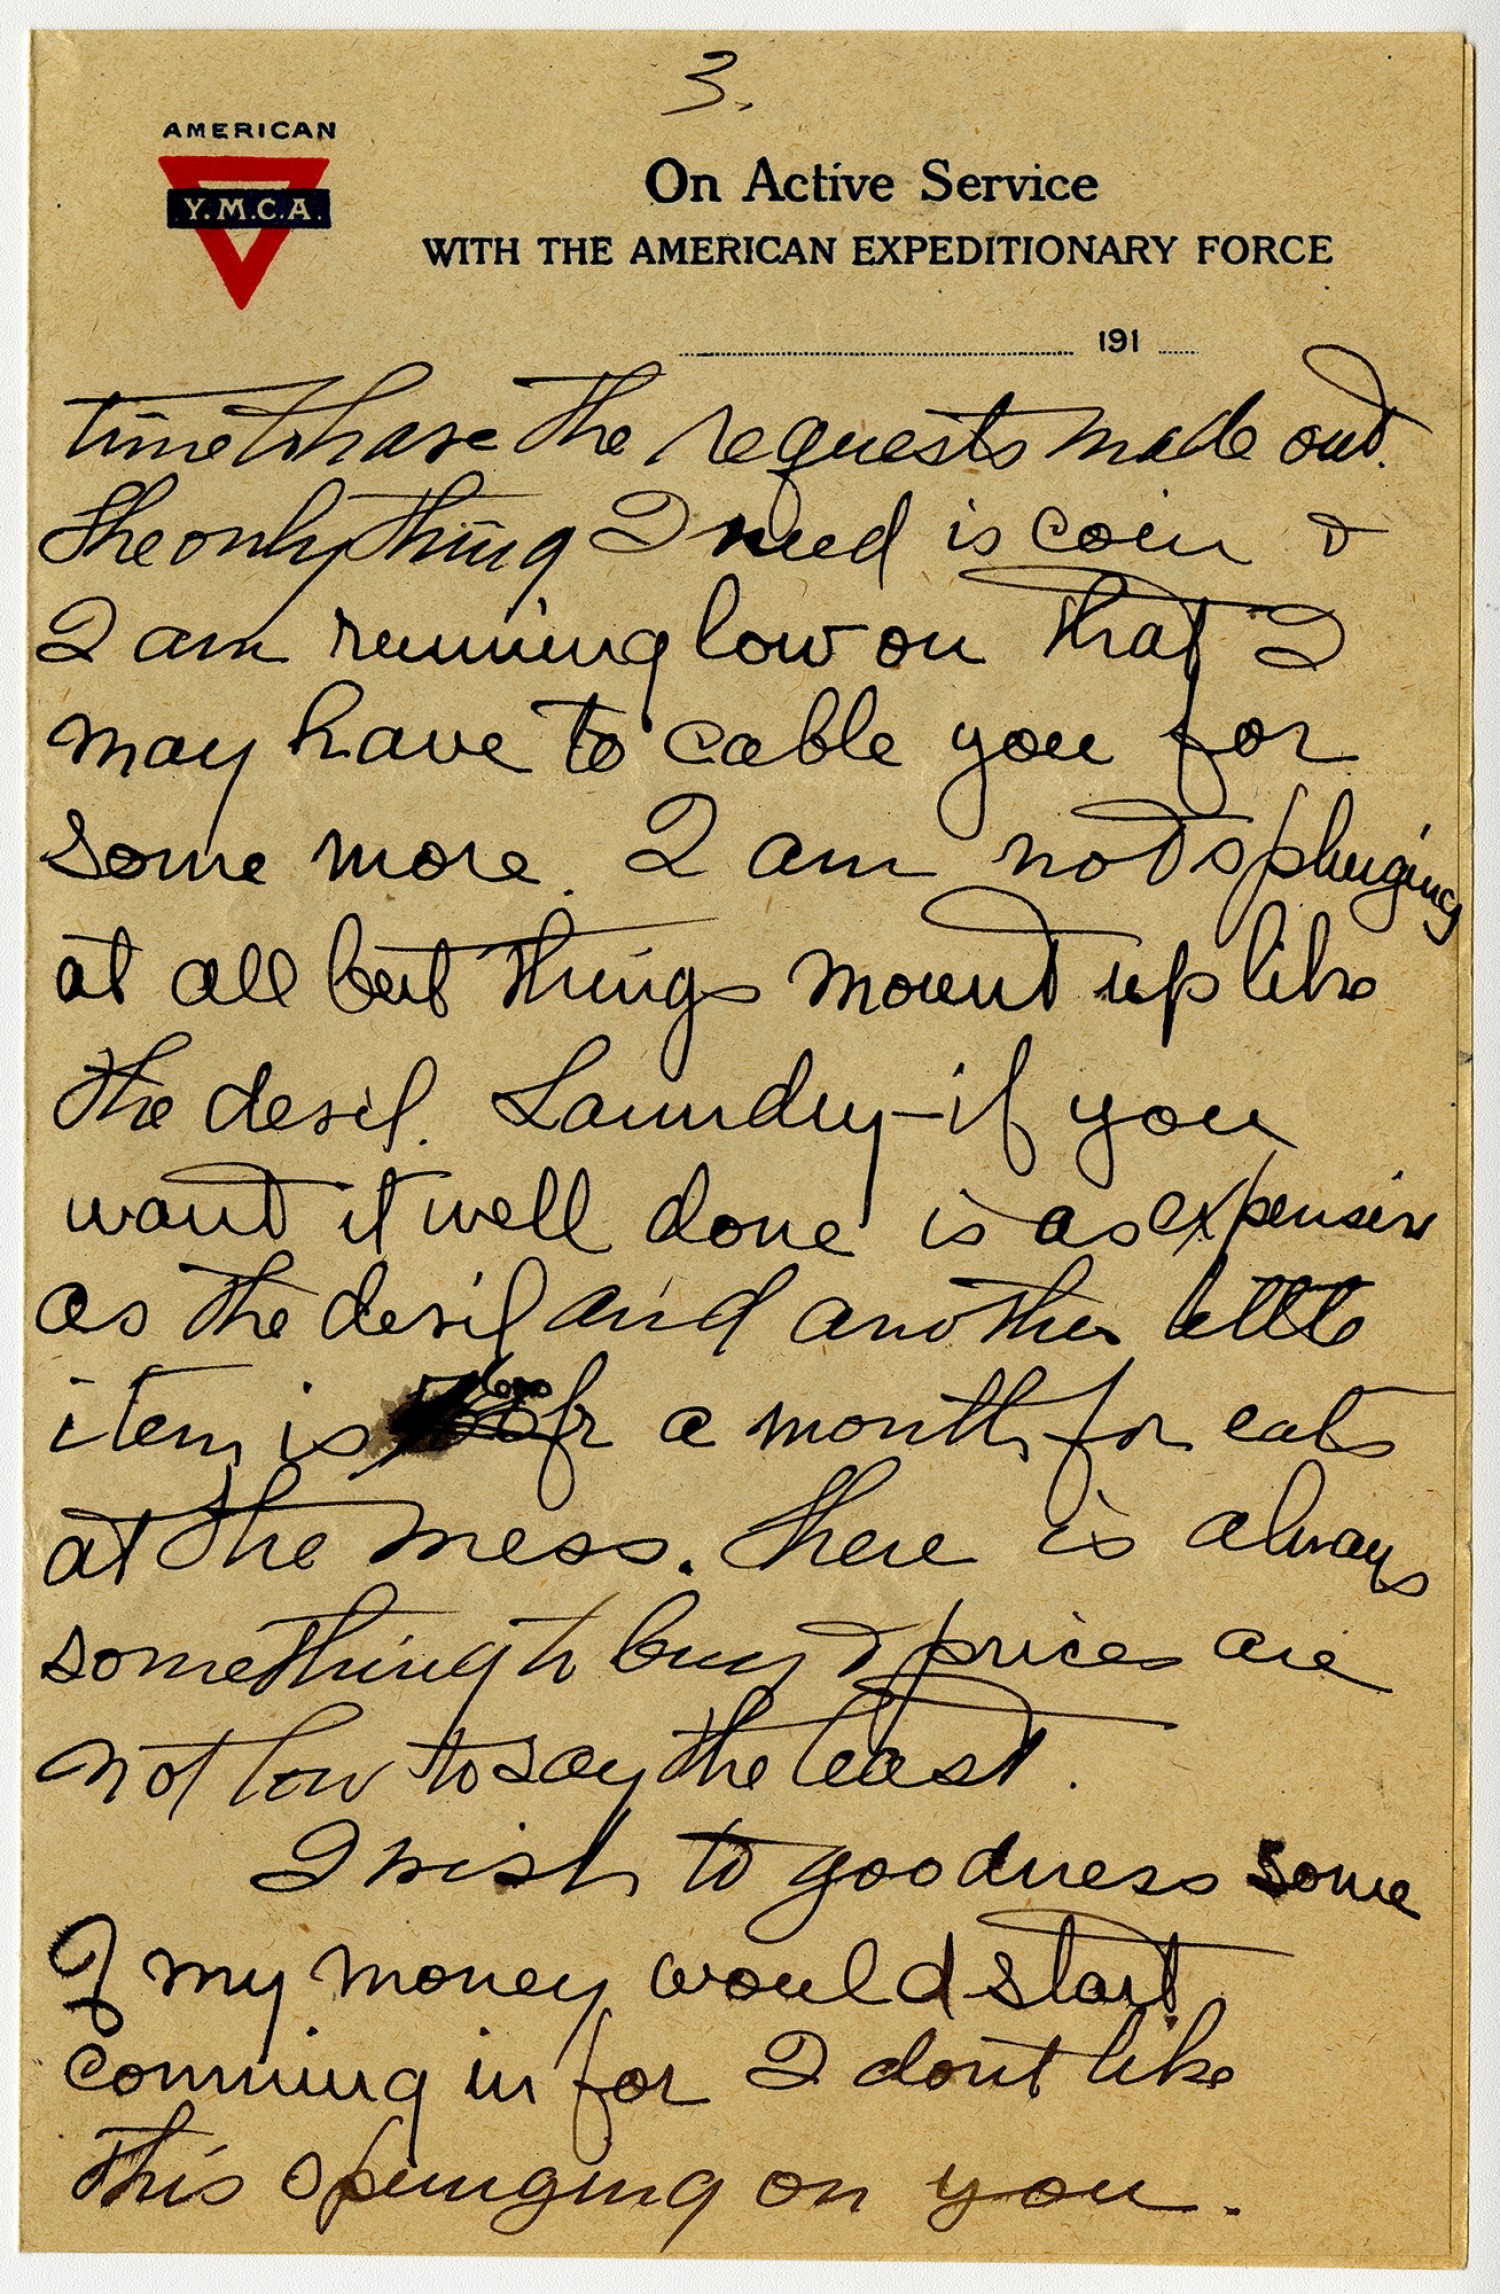 3.
AMERICAN
Y.M.C.A.
On Active Service
WITH THE AMERICAN EXPEDITIONARY FORCE
191
time to have the requests made out.
The only thing I need is coin &
I am running low on that I
may have to cable you for
some more. I am not splurging
at all but things mount up like
the devil. Laundry - if you
want it well done is as expensive
as the devil and another little
item is fr a month for eats
at the mess. There is always
something to buy & prices are
not low to say the least.
I wish to goodness some
of my money would start
comming in for I don't like
this spunging on you.